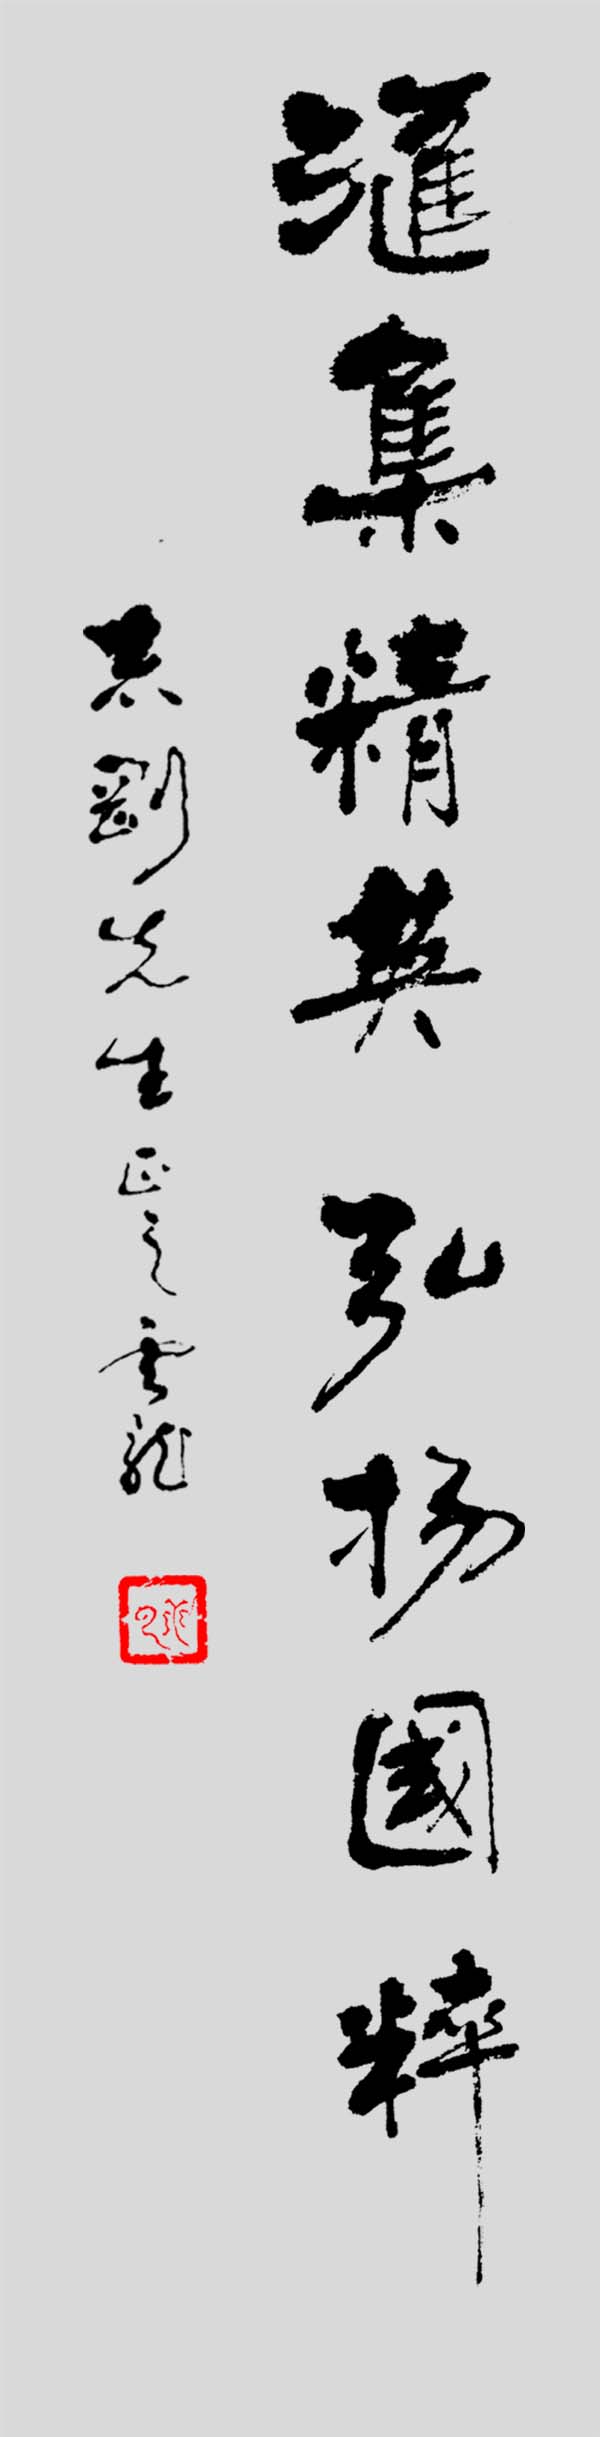 滙集精英 弘扬國粹
志剛先生正之 雲龍